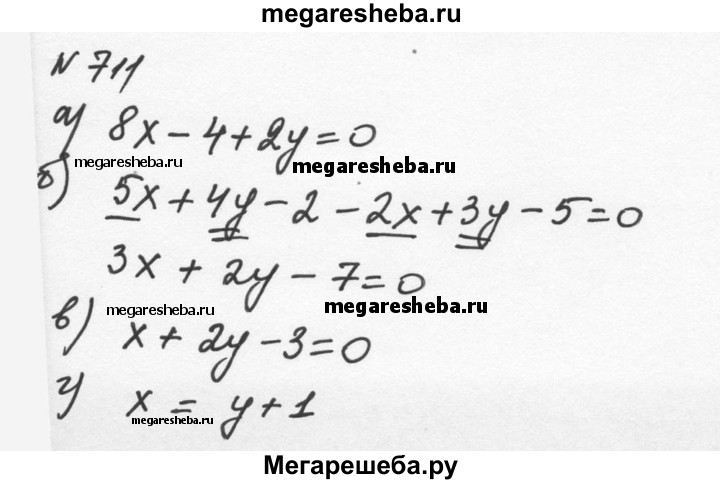 megaresheba.ru
N 711
а) 8x - 4 + 2y = 0
megaresheba.ru
megaresheba.ru
б) 5x + 4y - 2 - 2x + 3y - 5 = 0
3x + 2y - 7 = 0
megaresheba.ru
megaresheba.ru
в) x + 2y - 3 = 0
г) x = y + 1
megaresheba.ru
Мегарешеба.ру